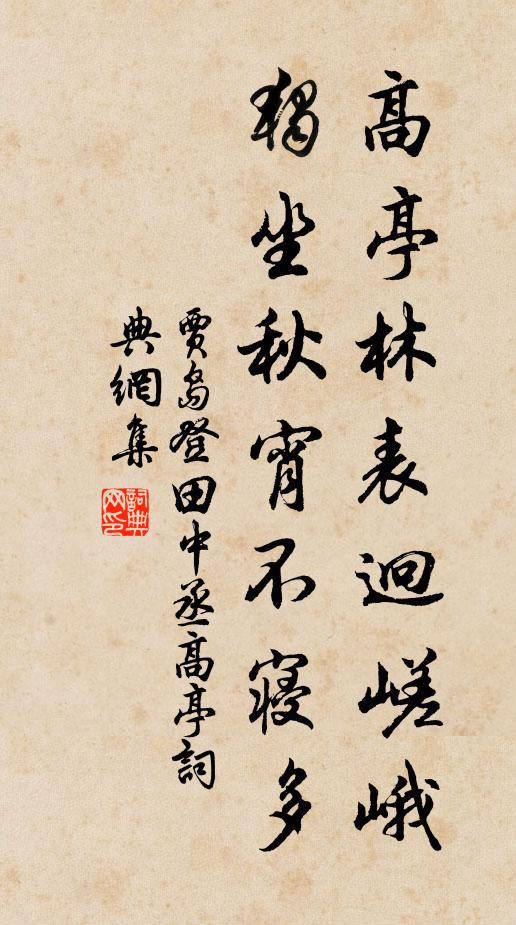 高亭林表迥嵯峨
獨坐秋宵不寢多
賈島登田中丞高亭詞
典網集
詞典網印